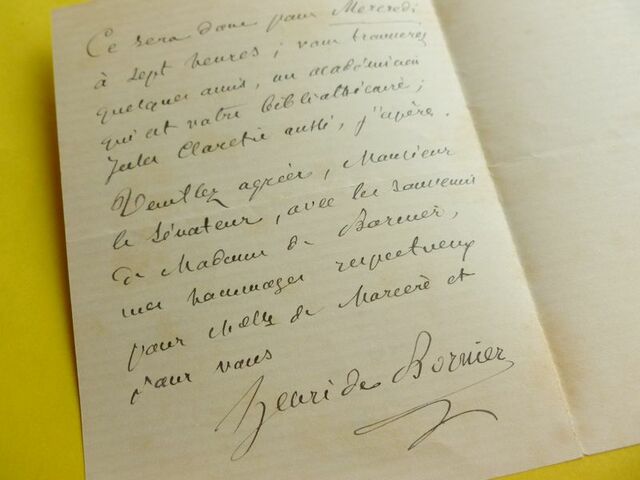 Ce sera donc pour Mercredi
à sept heures ; vous trouverez
quelques amis, un académicien
qui est votre bibliothécaire ;
Jules Claretie aussi, j'espère.
Veuillez agréer, Monsieur
le Sénateur, avec les souvenirs
de Madame de Bornier,
mes hommages respectueux
pour Melle de Marcère et
pour vous
Henri de Bornier